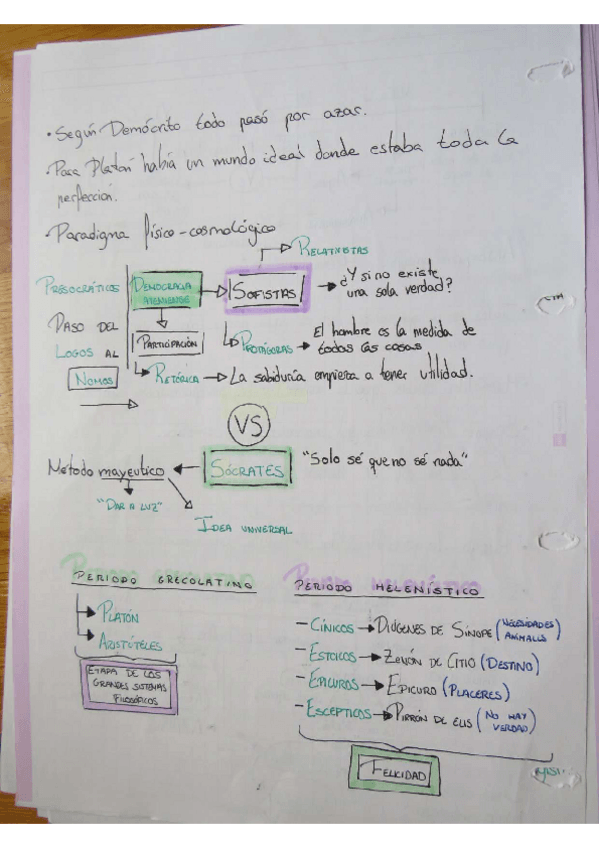 · Según Demócrito todo pasó por azar.
· Para Platón había un mundo ideal donde estaba toda la
perfección.
· Paradigma físico-cosmológico
RELATIVISTAS
PRESOCRÁTICOS
DEMOCRACIA
ATENIENSE
SOFISTAS
¿Y si no existe
una sola verdad?
PASO DEL
LOGOS AL
NOMOS
PARTICIPACIÓN
PROTÁGORAS
El hombre es la medida de
todas las cosas
RETÓRICA
La sabiduría empieza a tener utilidad.
VS
Método mayeutico
SÓCRATES
"Solo sé que no sé nada"
"DAR A LUZ"
IDEA UNIVERSAL
PERIODO GRECOLATINO
PERIODO HELENÍSTICO
PLATÓN
ARISTÓTELES
ETAPA DE LOS
GRANDES SISTEMAS
FILOSÓFICOS
- CÍNICOS → DIÓGENES DE SINOPE (NECESIDADES
ANIMALES)
- ESTOICOS → ZENÓN DE CITIO (DESTINO)
- EPICUROS → EPICURO (PLACERES)
- ESCÉPTICOS → PIRRÓN DE ELIS (NO HAY
VERDAD)
FELICIDAD